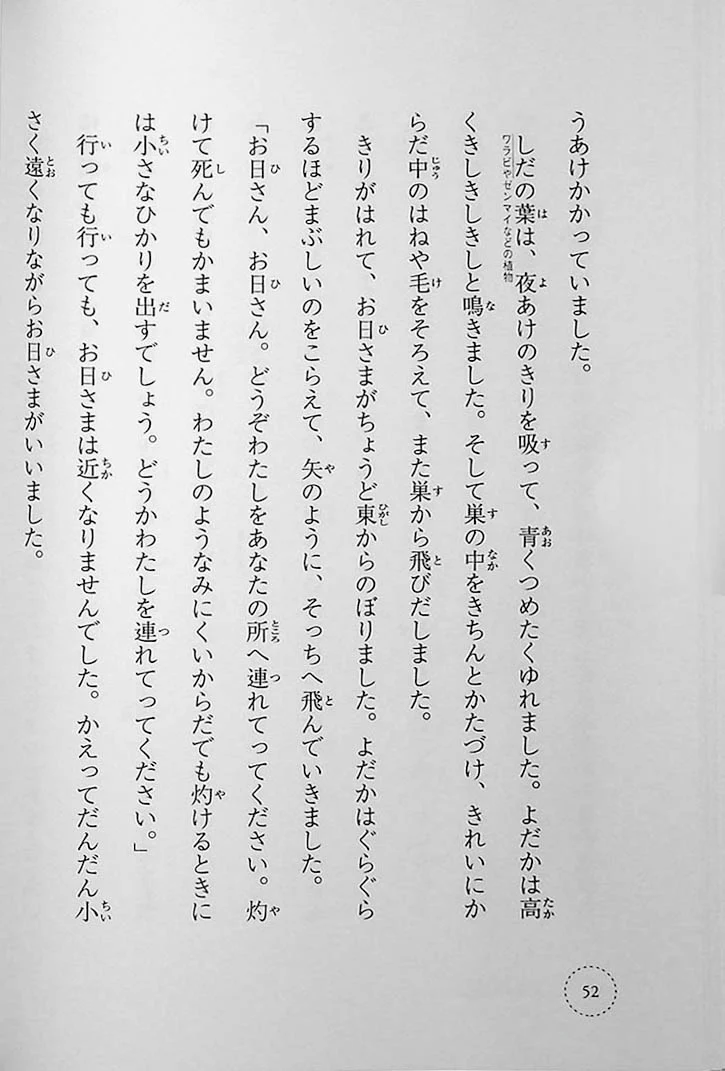 うあけかかっていました。
しだの葉は、夜あけのきりを吸って、青くつめたくゆれました。よだかは高
ワラビやゼンマイなどの植物
くきしきしきしと鳴きました。そして巣の中をきちんとかたづけ、きれいにか
らだ中のはねや毛をそろえて、また巣から飛びだしました。
きりがはれて、お日さまがちょうど東からのぼりました。よだかはぐらぐら
するほどまぶしいのをこらえて、矢のように、そっちへ飛んでいきました。
「お日さん、お日さん。どうぞわたしをあなたの所へ連れてってください。灼
けて死んでもかまいません。わたしのようなみにくいからだでも灼けるときに
は小さなひかりを出すでしょう。どうかわたしを連れてってください。」
行っても行っても、お日さまは近くなりませんでした。かえってだんだん小
さく遠くなりながらお日さまがいいました。
52